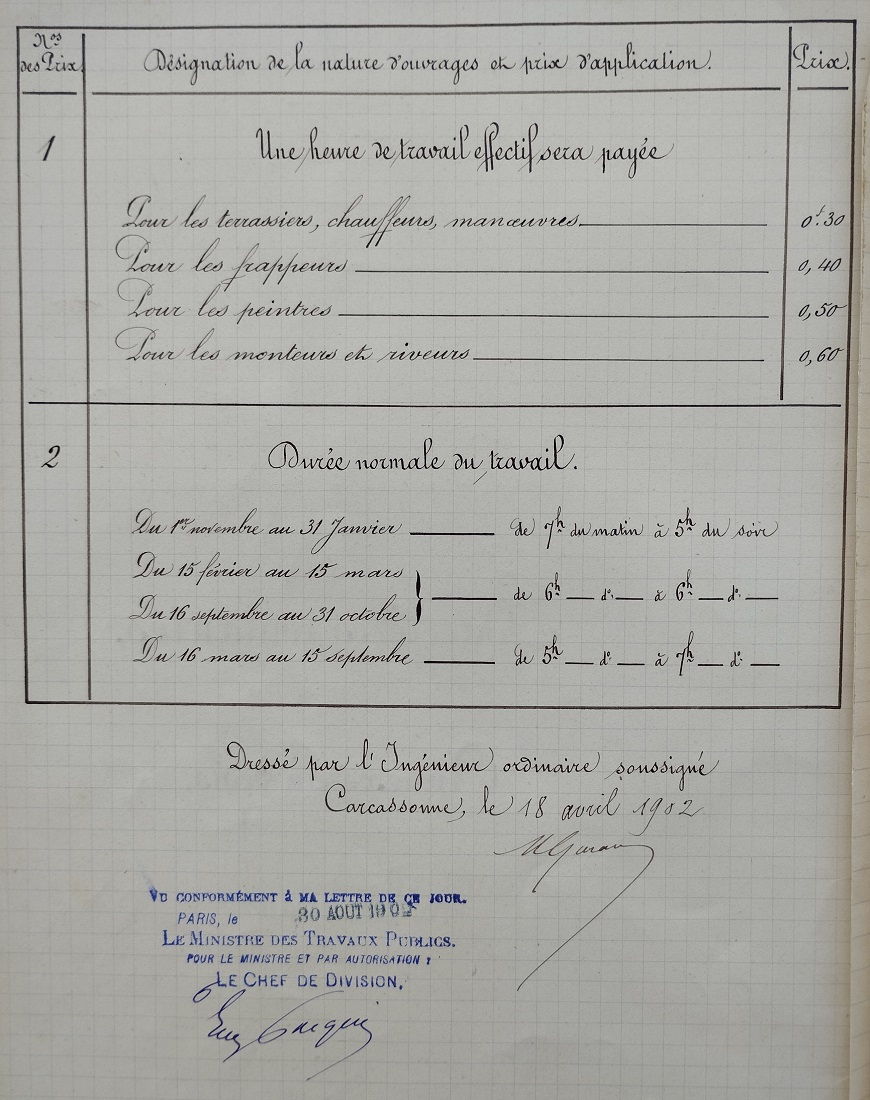 Nos
des Prix.
Désignation de la nature d'ouvrages et prix d'application.
Prix.
1
Une heure de travail effectif sera payée
Pour les terrassiers, chauffeurs, manœuvres 0f.30
Pour les frappeurs 0,40
Pour les peintres 0,50
Pour les monteurs et riveurs 0,60
2
Durée normale du travail.
Du 1er novembre au 31 Janvier de 7h du matin à 5h du soir
Du 15 février au 15 mars
de 6h do à 6h do
Du 16 septembre au 31 octobre
Du 16 mars au 15 septembre de 5h do à 7h do
Dressé par l'Ingénieur ordinaire soussigné
Carcassonne, le 18 avril 1902
VU CONFORMÉMENT à MA LETTRE DE CE JOUR.
PARIS, le 30 AOUT 1902
LE MINISTRE DES TRAVAUX PUBLICS.
POUR LE MINISTRE ET PAR AUTORISATION :
LE CHEF DE DIVISION,